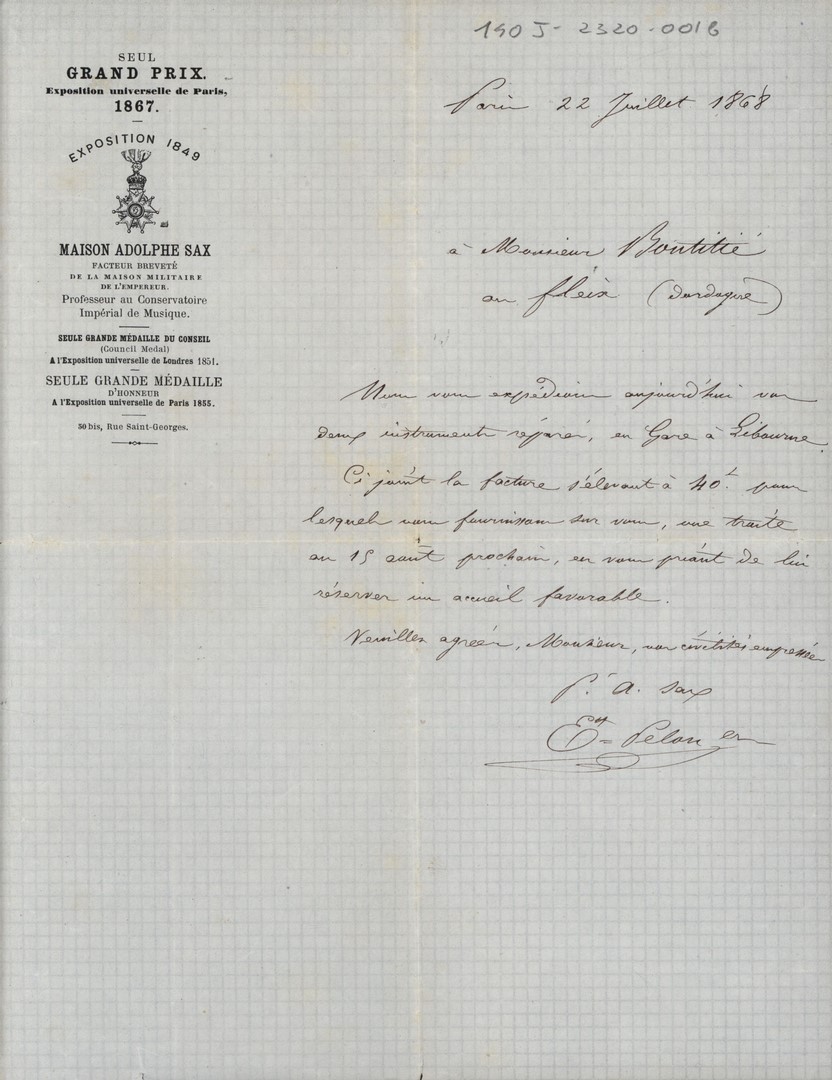 190 J - 2320 - 0016
SEUL
GRAND PRIX.
Exposition universelle de Paris,
1867.
EXPOSITION 1849
MAISON ADOLPHE SAX
FACTEUR BREVETÉ
DE LA MAISON MILITAIRE
DE L'EMPEREUR.
Professeur au Conservatoire
Impérial de Musique.
SEULE GRANDE MÉDAILLE DU CONSEIL
(Council Medal)
A l'Exposition universelle de Londres 1851.
SEULE GRANDE MÉDAILLE
D'HONNEUR
A l'Exposition universelle de Paris 1855.
50 bis, Rue Saint-Georges.
Paris 22 Juillet 1868
à Monsieur
au fleix (dordogne)
Nous vous expédions aujourd'hui vos
deux instruments réparés, en Gare à Libourne.
Ci joint la facture s'élevant à 40f. pour
lesquels vous fournissons sur vous, une traite
au 15 août prochain, en vous priant de lui
réserver un accueil favorable.
Veuillez agréer, Monsieur, nos civilités empressées
P. A. Sax